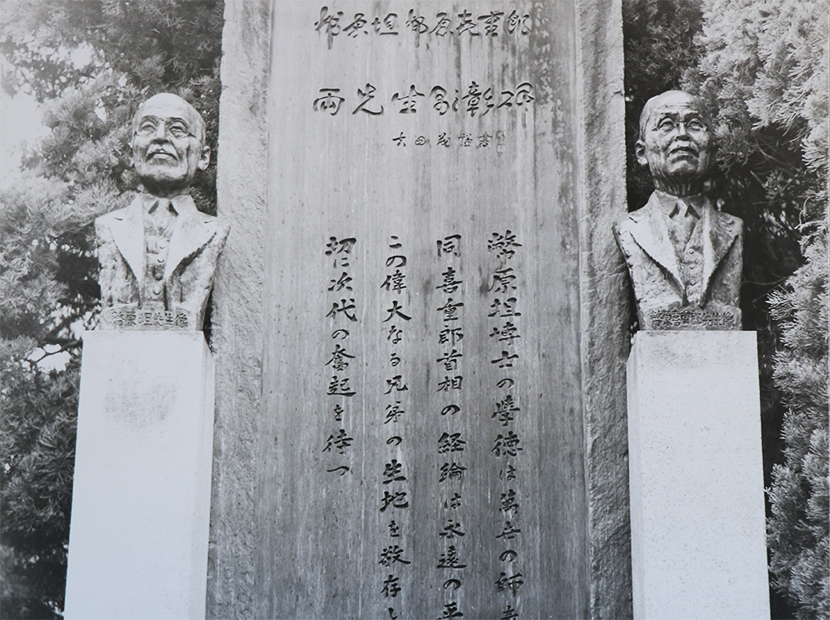 幣原坦幣原喜重郎
両先生顕彰碑
幣原坦博士の學徳は萬世の師
同喜重郎首相の経綸は永遠の平
この偉大なる兄弟の生地を敬存し
切に次代の奮起を待つ
幣原坦先生像
幣原喜重郎先生像